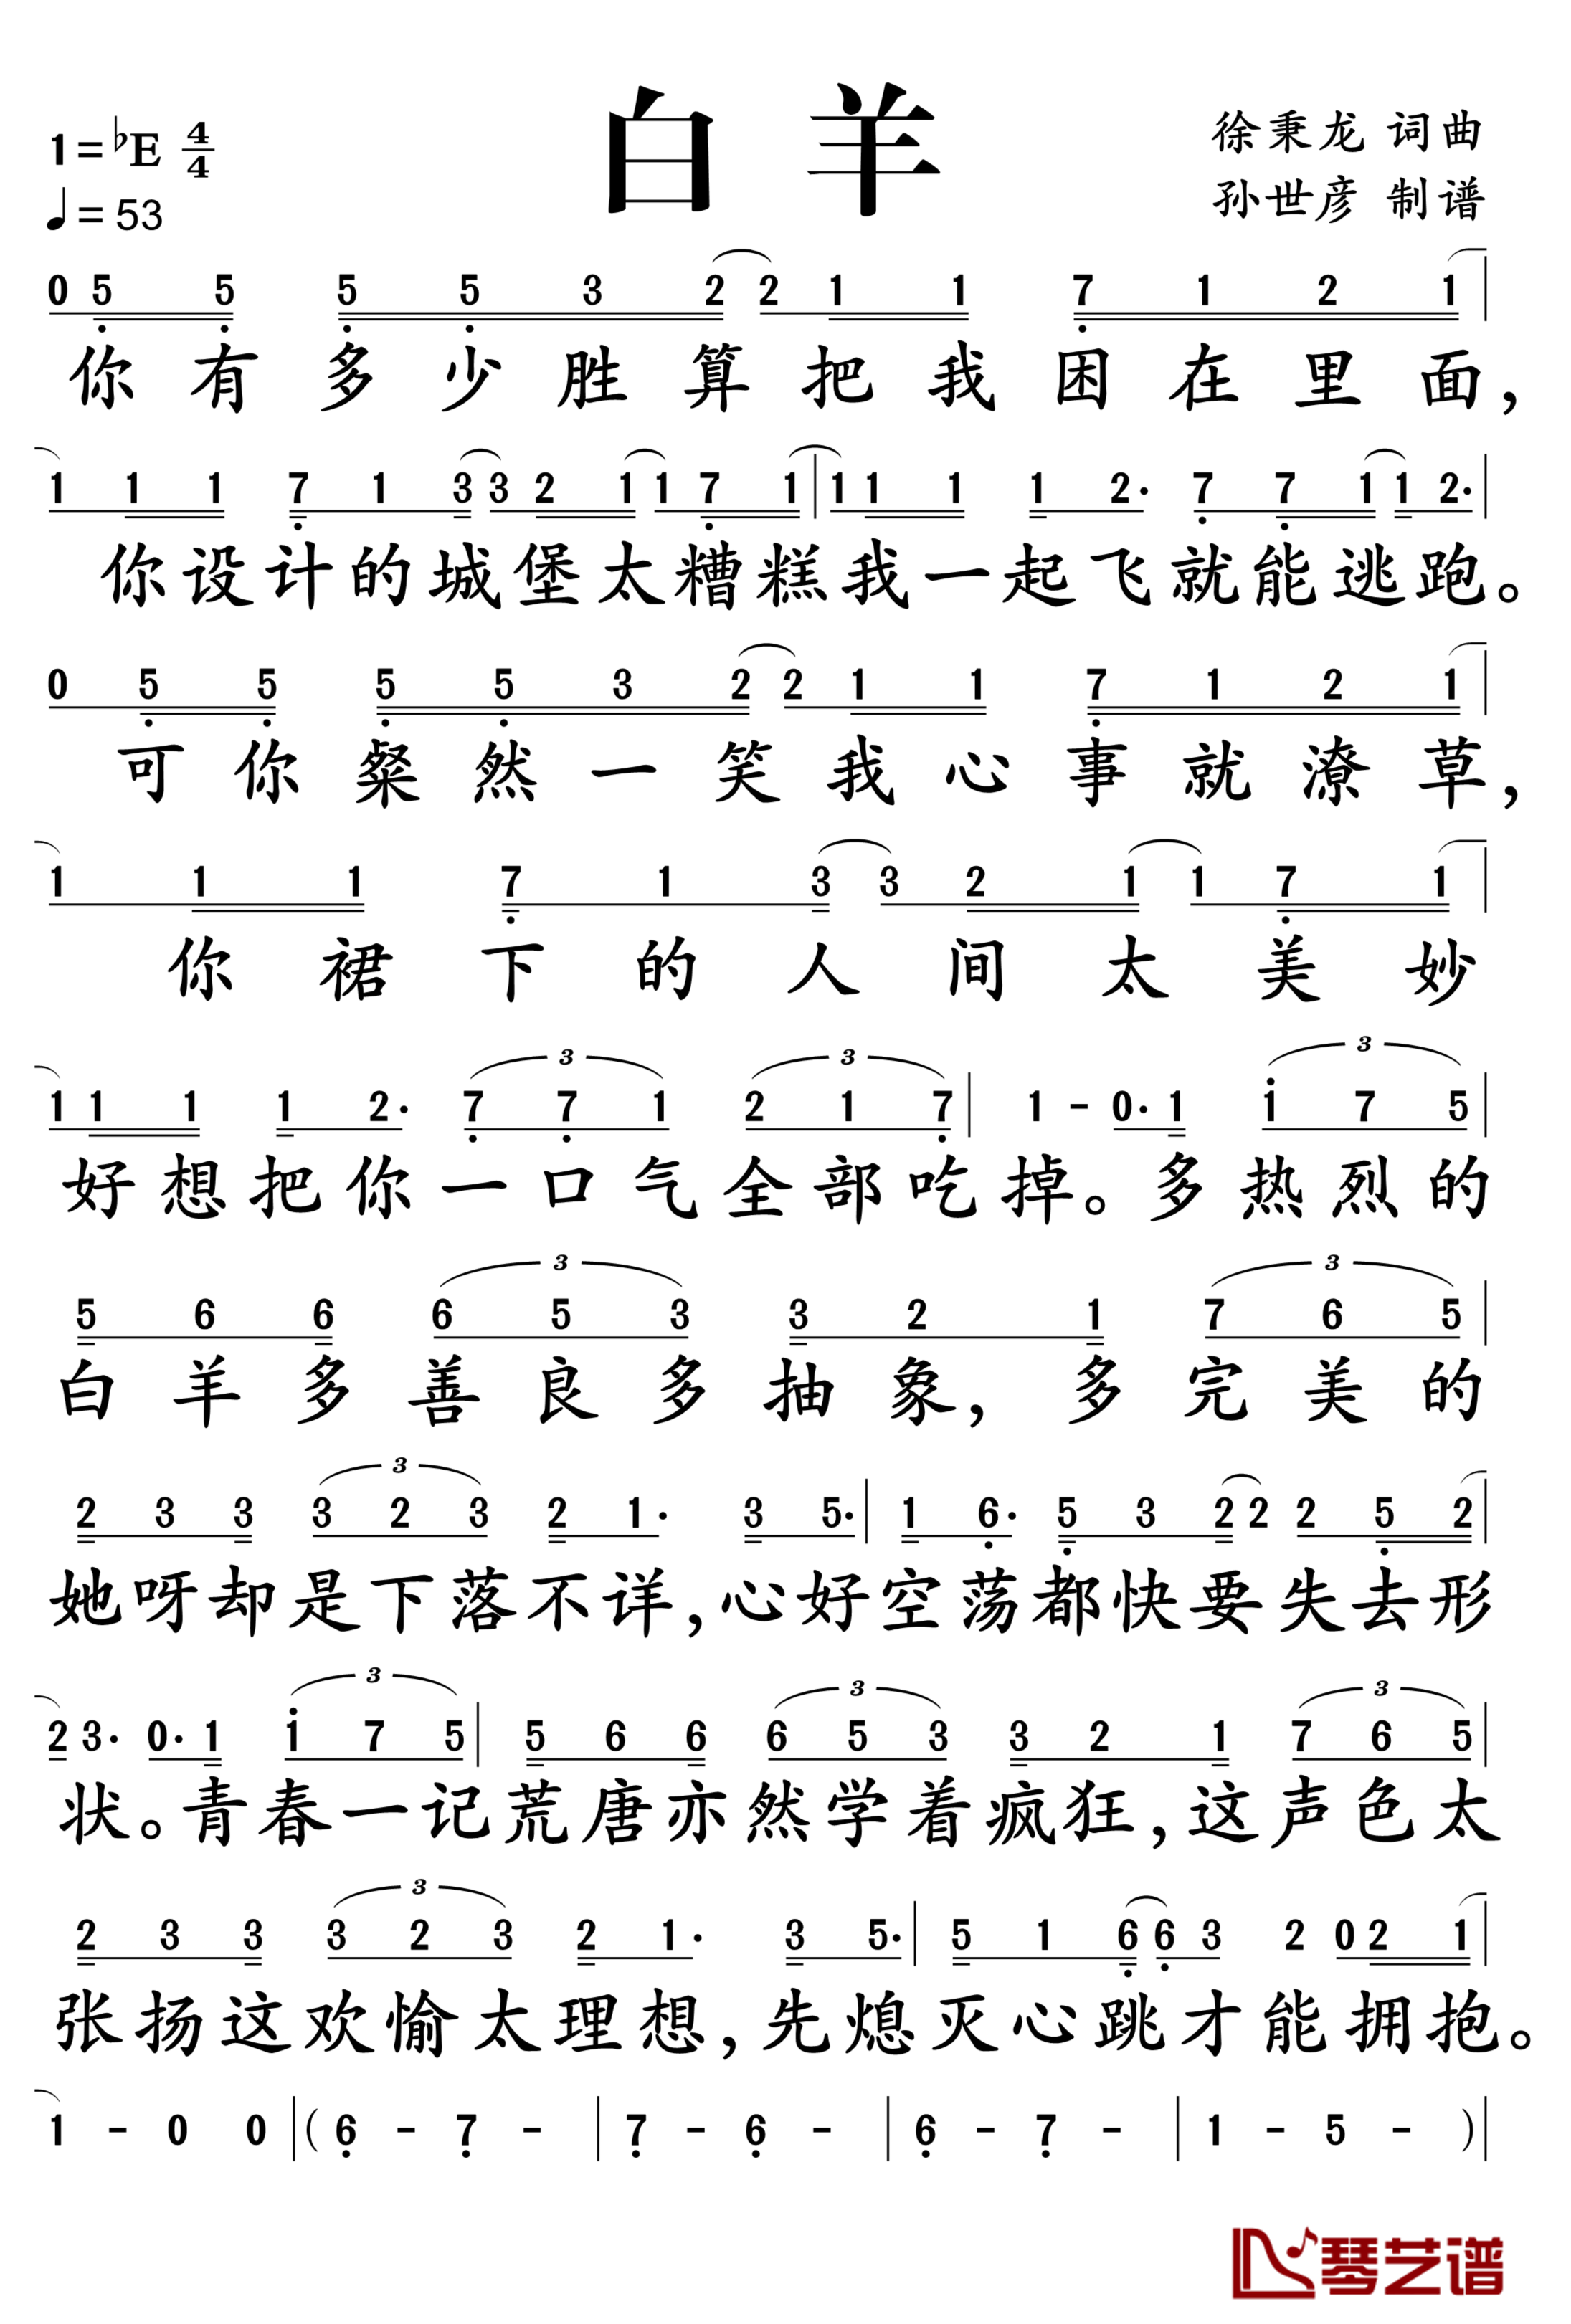 白 羊
1=♭E 4/4
♩= 53
徐秉龙 词曲
孙世彦 制谱
0 5 5 5 5 3 2 2 1 1 7 1 2 1
你有多少胜算把我困在里面，
1 1 1 7 1 3 3 2 1 1 7 1 | 1 1 1 1 2· 7 7 1 1 2· |
你设计的城堡太糟糕我一起飞就能逃跑。
0 5 5 5 5 3 2 2 1 1 7 1 2 1 |
可你粲然一笑我心事就潦草，
1 1 1 7 1 3 3 2 1 1 7 1 |
你裙下的人间太美妙
3 3
1 1 1 1 2· 7 7 1 2 1 7 | 1 - 0· 1 i 7 5 |
好想把你一口气全部吃掉。多热烈的
3 3
5 6 6 6 5 3 3 2 1 7 6 5 |
白羊多善良多抽象，多完美的
3
2 3 3 3 2 3 2 1· 3 5· | 1 6· 5 3 2 2 2 5 2 |
她呀却是下落不详，心好空荡都快要失去形
3 3 3
2 3· 0· 1 i 7 5 | 5 6 6 6 5 3 3 2 1 7 6 5 |
状。青春一记荒唐亦然学着疯狂，这声色太
3
2 3 3 3 2 3 2 1· 3 5· | 5 1 6 6 3 2 0 2 1 |
张扬这欢愉太理想，先熄灭心跳才能拥抱。
1 - 0 0 | ( 6 - 7 - | 7 - 6 - | 6 - 7 - | 1 - 5 - ) |
琴艺谱